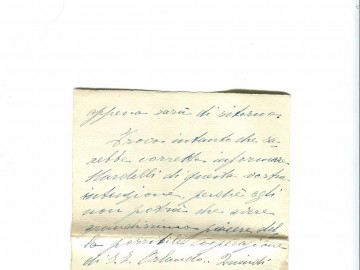 appena sarà di ritorno.
Trovo intanto che sa-
rebbe corretto informare
Nardelli di questa vostra
intenzione, perchè egli
non potrà che avere
grandissimo piacere del
la possibile cooperazione
di S. E. Orlando. Quindi